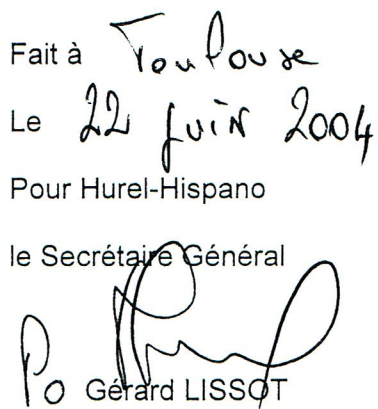 Fait à Toulouse
Le 22 juin 2004
Pour Hurel-Hispano
le Secrétaire Général
Po Gérard LISSOT